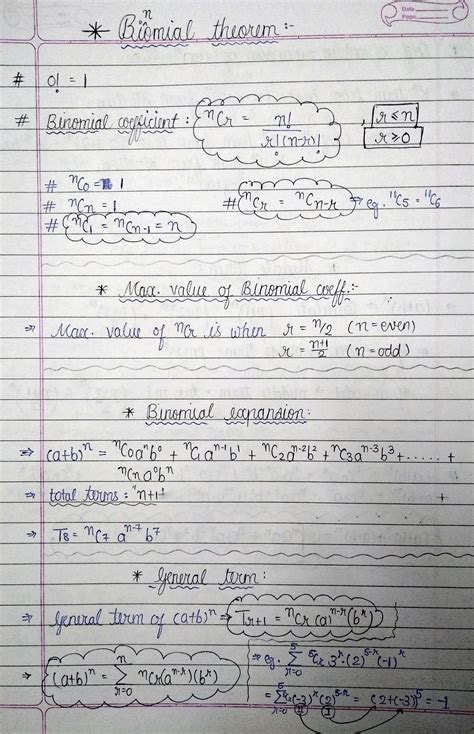 Date
Page
* Binomial theorem :-
# 0! = 1
# Binomial coefficient : nCr = n! / r!(n-r)! , r ≤ n
r ≥ 0
# nC0 = 1
# nCn = 1 # nCr = nCn-r ⇒ eg. 11C5 = 11C6
# nC1 = nCn-1 = n
* Max. value of Binomial coeff. :-
⇒ Max. value of nCr is when r = n/2 (n = even)
r = n+1/2 (n = odd)
* Binomial expansion:
⇒ (a+b)^n = nC0 a^n b^0 + nC1 a^n-1 b^1 + nC2 a^n-2 b^2 + nC3 a^n-3 b^3 + ...... +
nCn a^0 b^n
⇒ total terms : "n+1" +
⇒ T8 = nC7 a^n-7 b^7
* General term :
⇒ General term of (a+b)^n ⇒ Tr+1 = nCr (a)^n-r (b^r)
⇒ (a+b)^n = n∑r=0 nCr (a^n-r)(b^r)
⇒ eg. 5∑r=0 5Cr 3^r · (2)^5-r (-1)^r
= 5∑r=0 5Cr (-3)^r (2)^5-r = (2+(-3))^5 = -1
II I